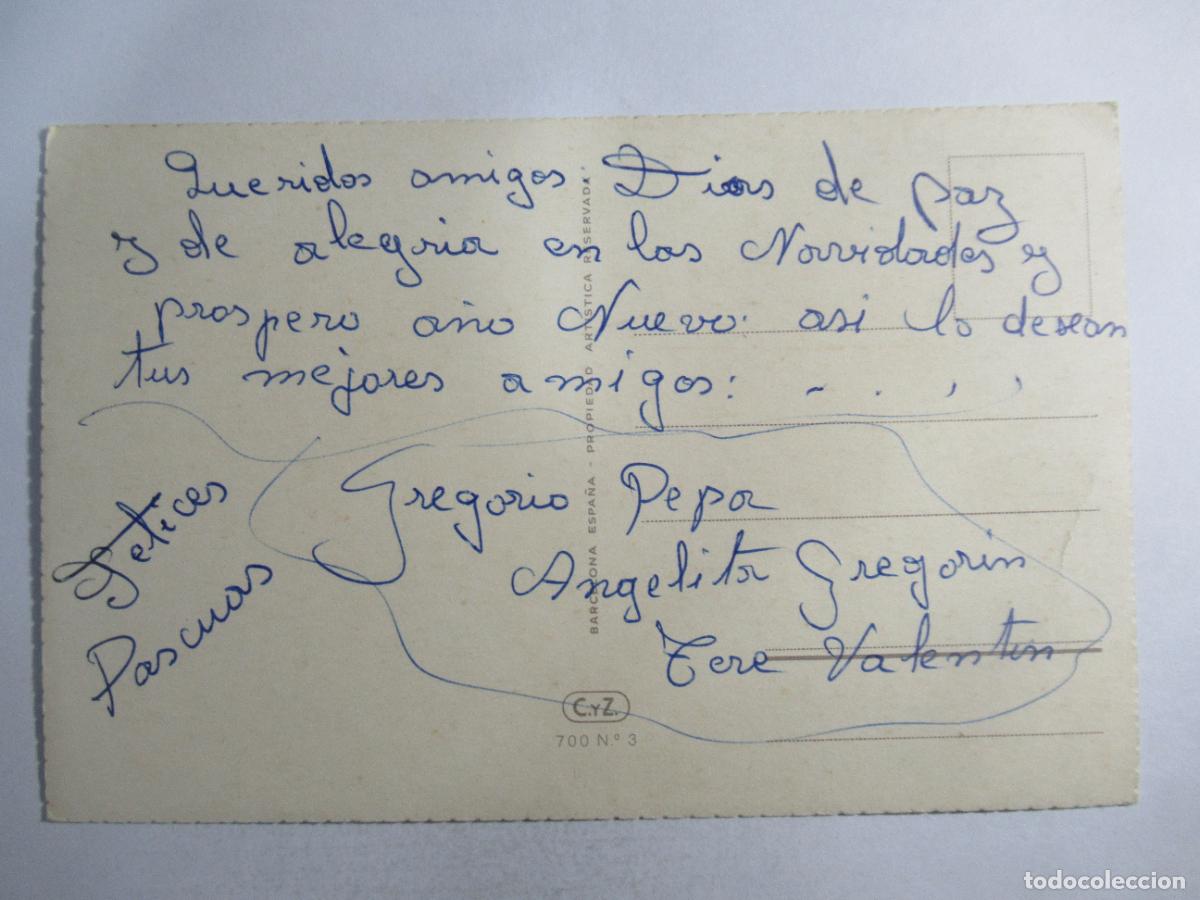 Queridos amigos Dias de paz
y de alegria en las Navidades y
prospero año Nuevo. asi lo desean
tus mejores amigos: - . , ,
Gregorio Pepa
Angelita Gregorin
Tere Valentin
Felices
Pascuas
BARCELONA ESPAÑA - PROPIEDAD ARTISTICA RESERVADA
C.YZ.
700 N.º 3
todocoleccion